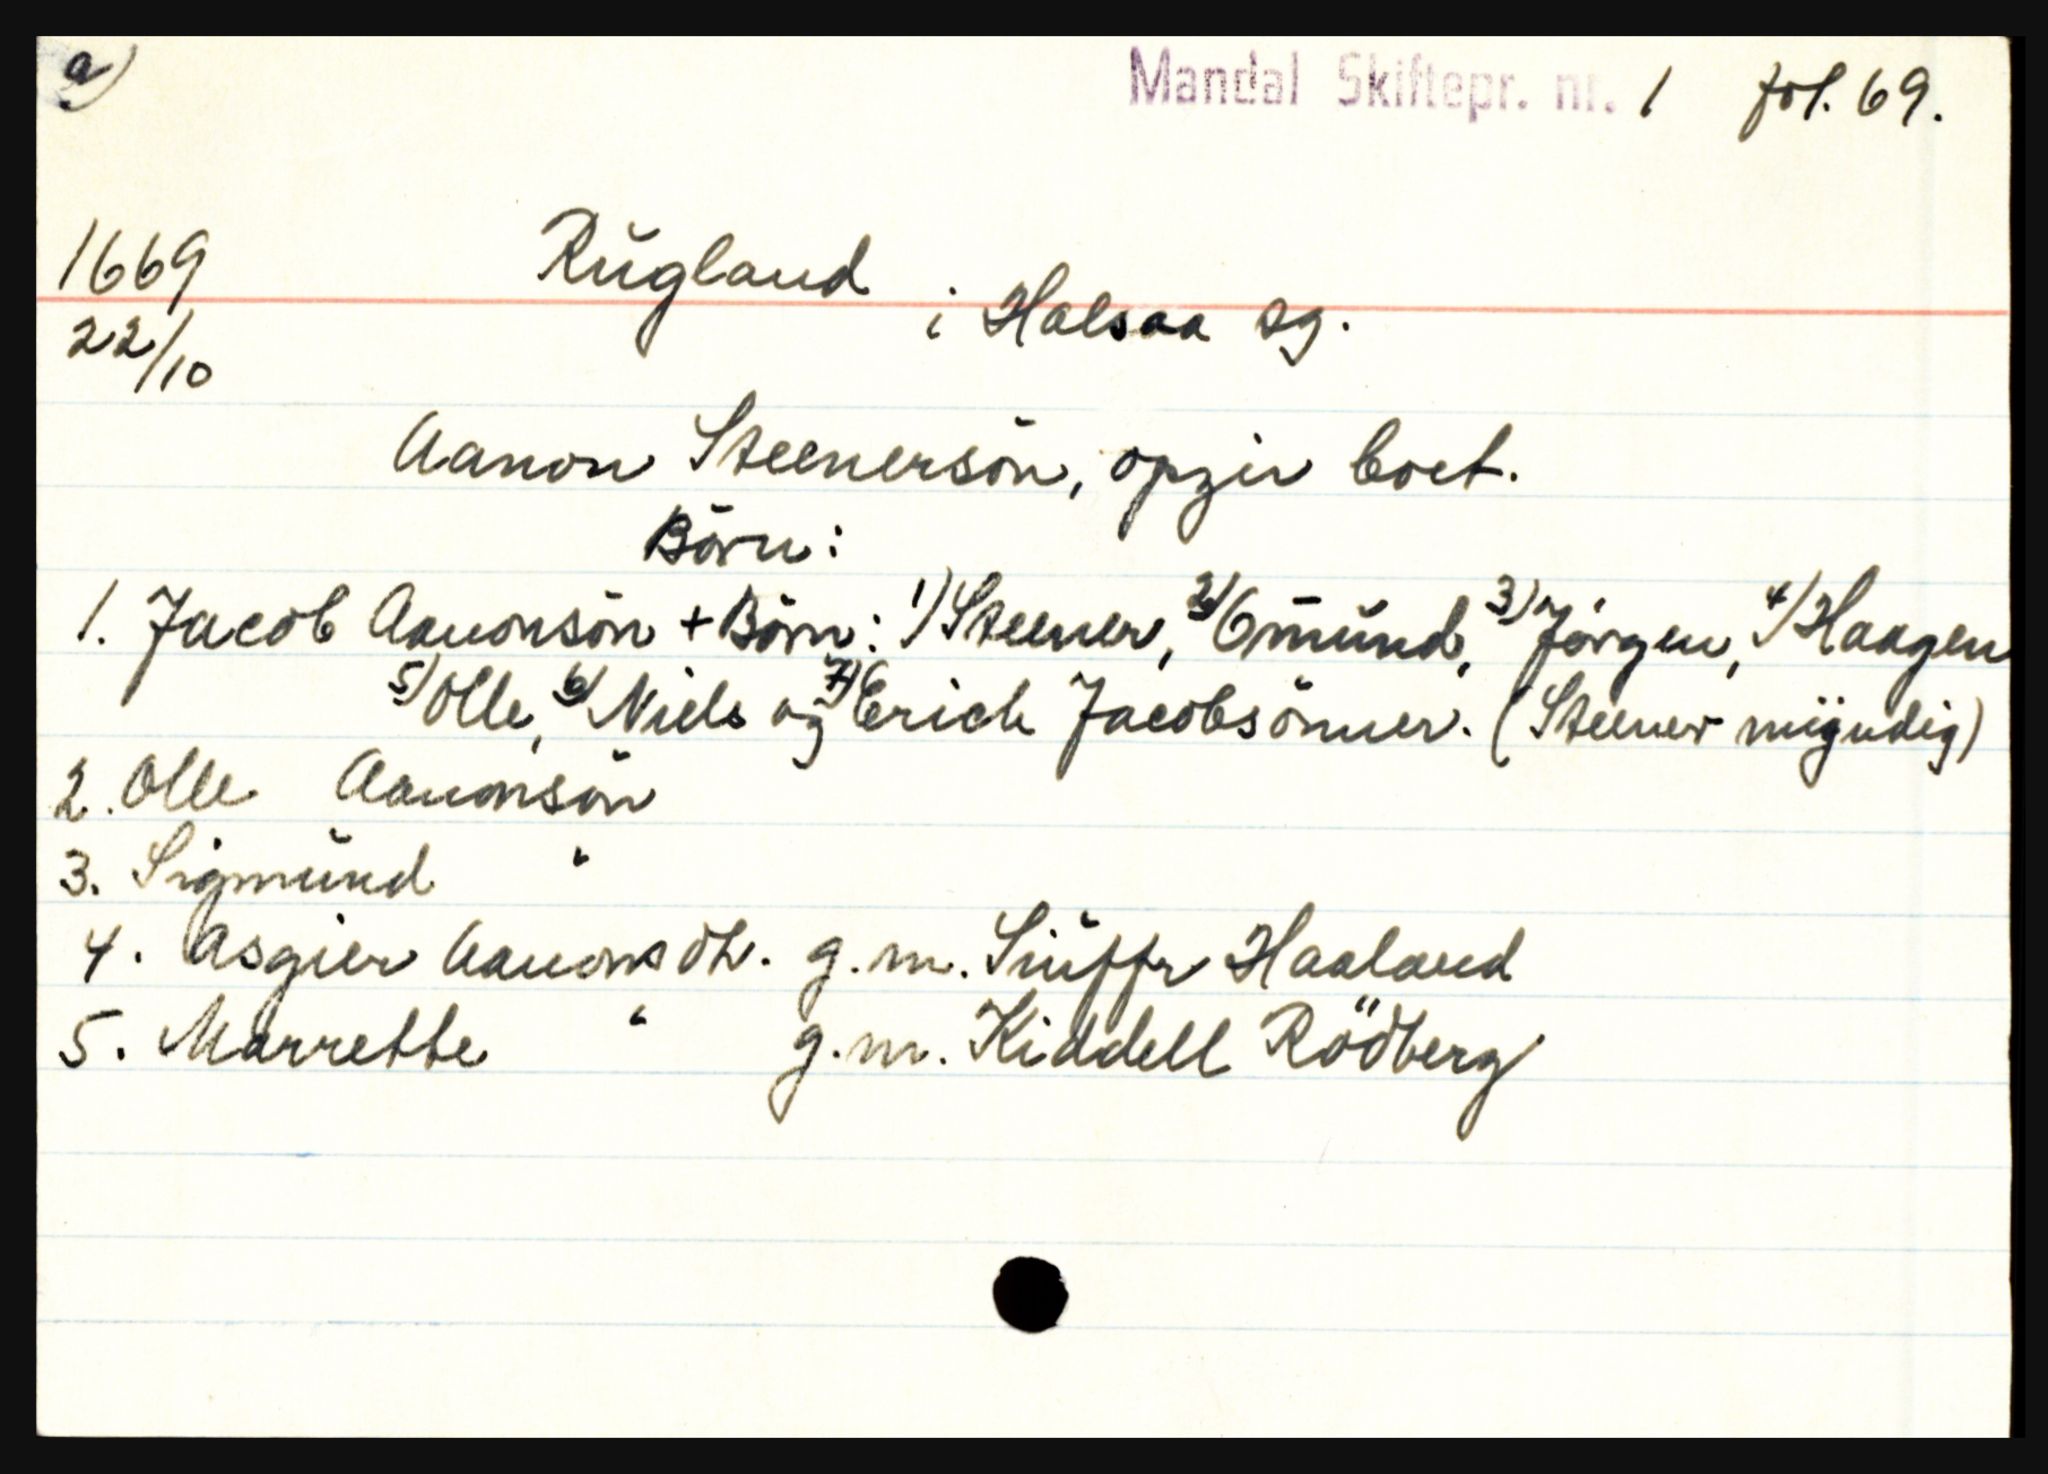 a)
Mandal Skiftepr. nr. 1 fol. 69.
1669
22/10
Rŭgland
i Halsaa sg.
Aanon Steenersön, opgir boet.
Börn:
1. Jacob Aanonsön + Börn: 1) Steener, 2) Omŭnd, 3) Jörgen, 4) Haagen
5) Olle, 6) Niels og 7) Erich Jacobsönner. (Steener mÿndig)
2. Olle Aanonsön
3. Sigmŭnd "
4. Asgier Aanonsdtr. g.m. Siŭffr Haaland
5. Marrette " g.m. Kiddell Rödberg